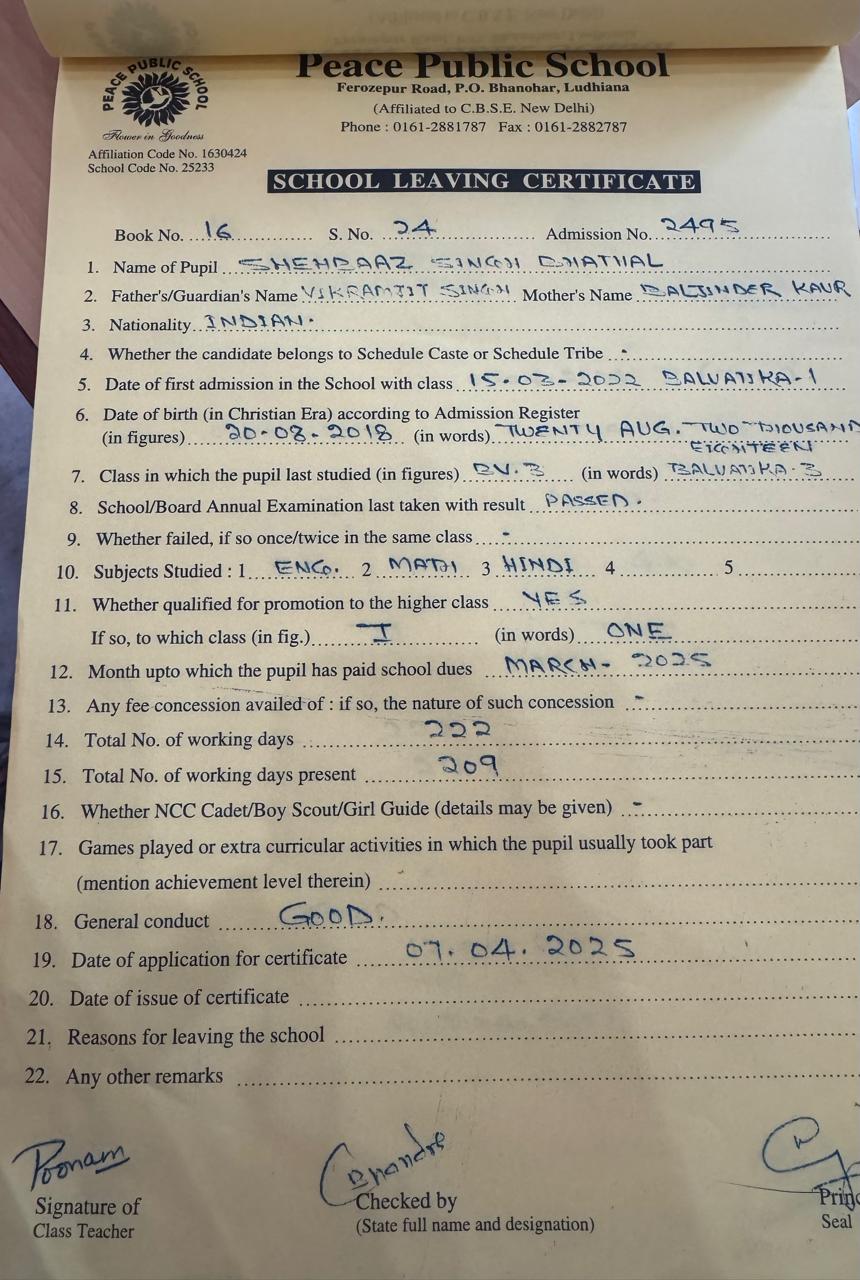 PEACE PUBLIC SCHOOL
Flower in Goodness
Affiliation Code No. 1630424
School Code No. 25233
Peace Public School
Ferozepur Road, P.O. Bhanohar, Ludhiana
(Affiliated to C.B.S.E. New Delhi)
Phone : 0161-2881787 Fax : 0161-2882787
SCHOOL LEAVING CERTIFICATE
Book No. 16 S. No. 24 Admission No. 2495
1. Name of Pupil SHEHBAAZ SINGH DHATHAL
2. Father's/Guardian's Name VIKRAMJIT SINGH Mother's Name BALJINDER KAUR
3. Nationality INDIAN.
4. Whether the candidate belongs to Schedule Caste or Schedule Tribe -
5. Date of first admission in the School with class 15-03-2022 BALVATIKA-1
6. Date of birth (in Christian Era) according to Admission Register
(in figures) 20-08-2018 (in words) TWENTY AUG. TWO THOUSAND
EIGHTEEN
7. Class in which the pupil last studied (in figures) BV.3 (in words) BALVATIKA-3
8. School/Board Annual Examination last taken with result PASSED.
9. Whether failed, if so once/twice in the same class -
10. Subjects Studied : 1 ENG. 2 MATH 3 HINDI 4 5
11. Whether qualified for promotion to the higher class YES
If so, to which class (in fig.) I (in words) ONE
12. Month upto which the pupil has paid school dues MARCH- 2025
13. Any fee concession availed of : if so, the nature of such concession -
14. Total No. of working days 222
15. Total No. of working days present 209
16. Whether NCC Cadet/Boy Scout/Girl Guide (details may be given) -
17. Games played or extra curricular activities in which the pupil usually took part
(mention achievement level therein)
18. General conduct GOOD.
19. Date of application for certificate 07.04.2025
20. Date of issue of certificate
21. Reasons for leaving the school
22. Any other remarks
Poonam
Signature of
Class Teacher
Checked by
(State full name and designation)
Princ
Seal